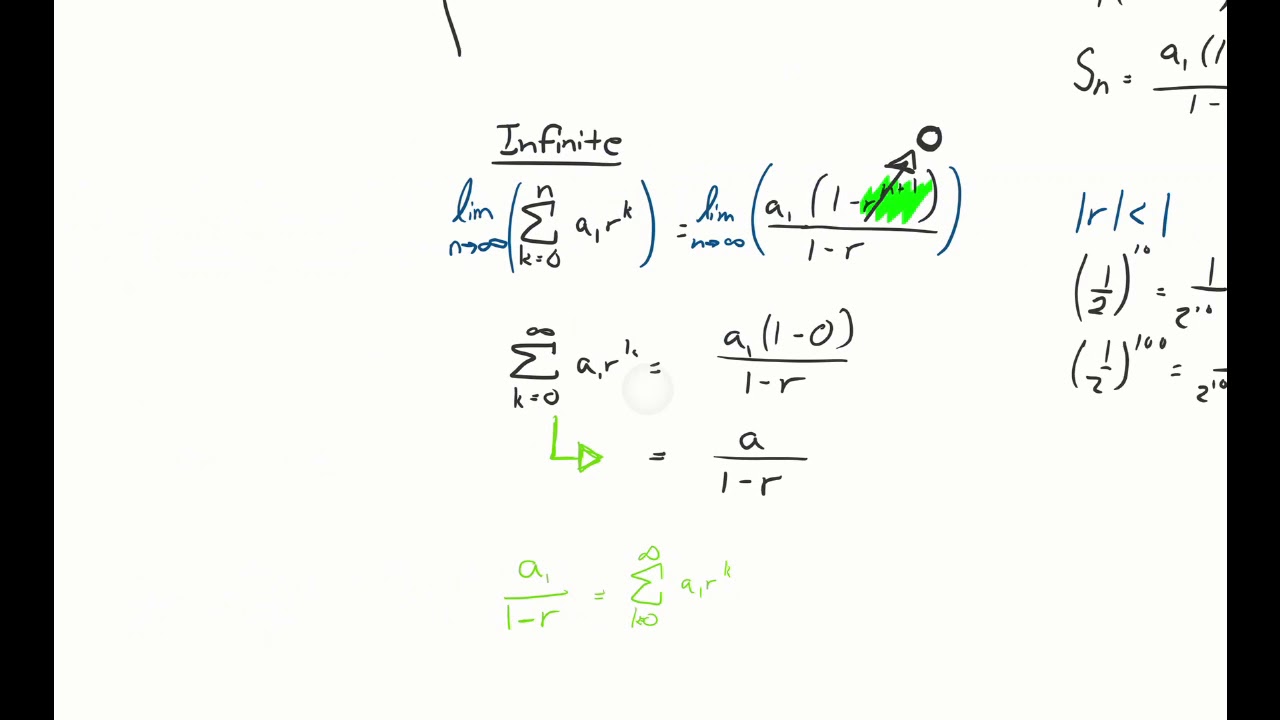 Infinite
lim n→∞ ( ∑ k=0 n a₁r^k ) = lim n→∞ ( a₁(1-r^(n+1)) / 1-r ) 0
∑ k=0 ∞ a₁r^k = a₁(1-0) / 1-r
= a / 1-r
a₁ / 1-r = ∑ k=0 ∞ a₁r^k
Sₙ = a₁(1 / 1-
|r|<1
(1/2)^10 = 1 / 2^10
(1/2)^100 = / 2^10